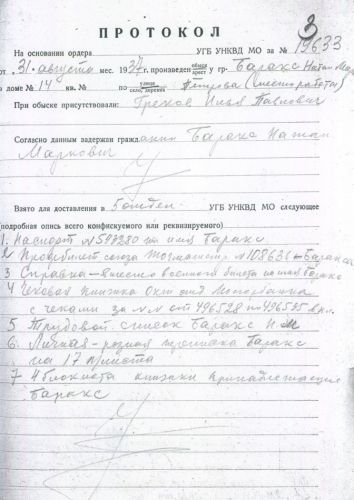 3
ПРОТОКОЛ
На основании ордера УГБ УНКВД МО за № 19633
от „31" августа мес. 1937, произведен обыск арест у гр. Баракс Натан Мар
в доме № 14 кв. № по улице село, деревня Петрова (место работы)
При обыске присутствовали: Греков Илья Павлович
Согласно данным задержан гражданин Баракс Натан
Маркович
Взято для доставления в 5 отдел УГБ УНКВД МО следующее
(подробная опись всего конфискуемого или реквизируемого)
1. Паспорт № 597280 на имя Баракс.
2 Профбилет союза № 108636 – Баракса
3 Справка – вместо военного билета на имя Баракс
4 Чековая книжка
с чеками за №№ от 496528 по 496535 вкл.
5 Трудовой список Баракс Н М
6. Личная – разная переписка Баракс
на 17 листа
7 4 блокнота книжки принадлежащие
Баракс